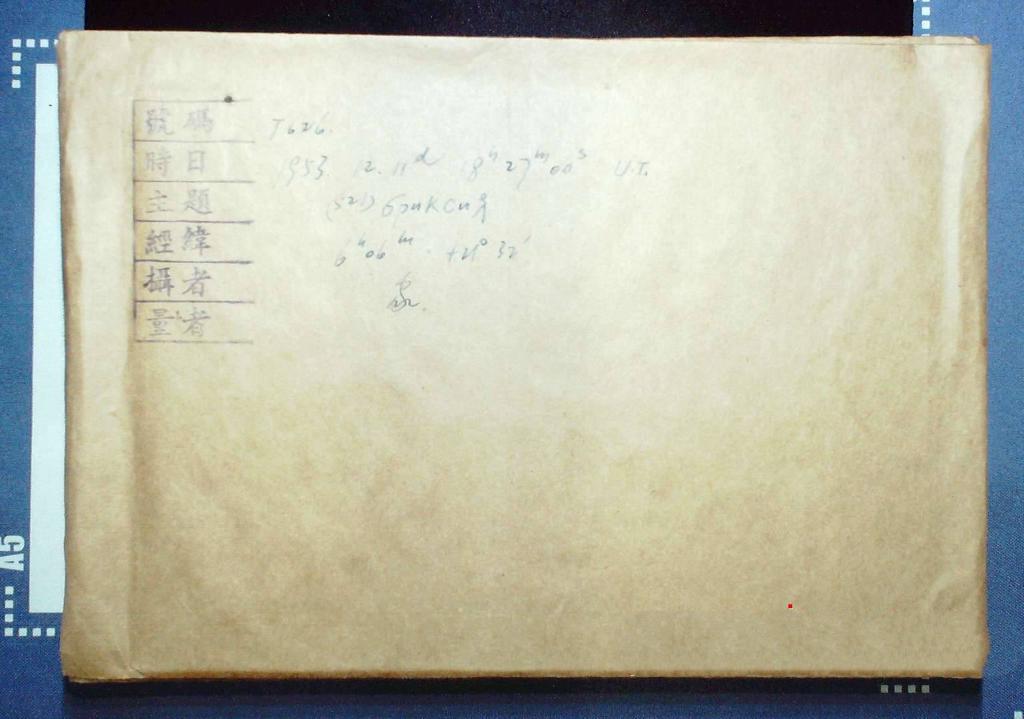 號碼 T626.
時日 1953. 12. 11ᵈ 18ʰ 27ᵐ 00ˢ U.T.
主題 (521)
經緯 6ʰ 06ᵐ. +21° 32′
攝者
量者
A5